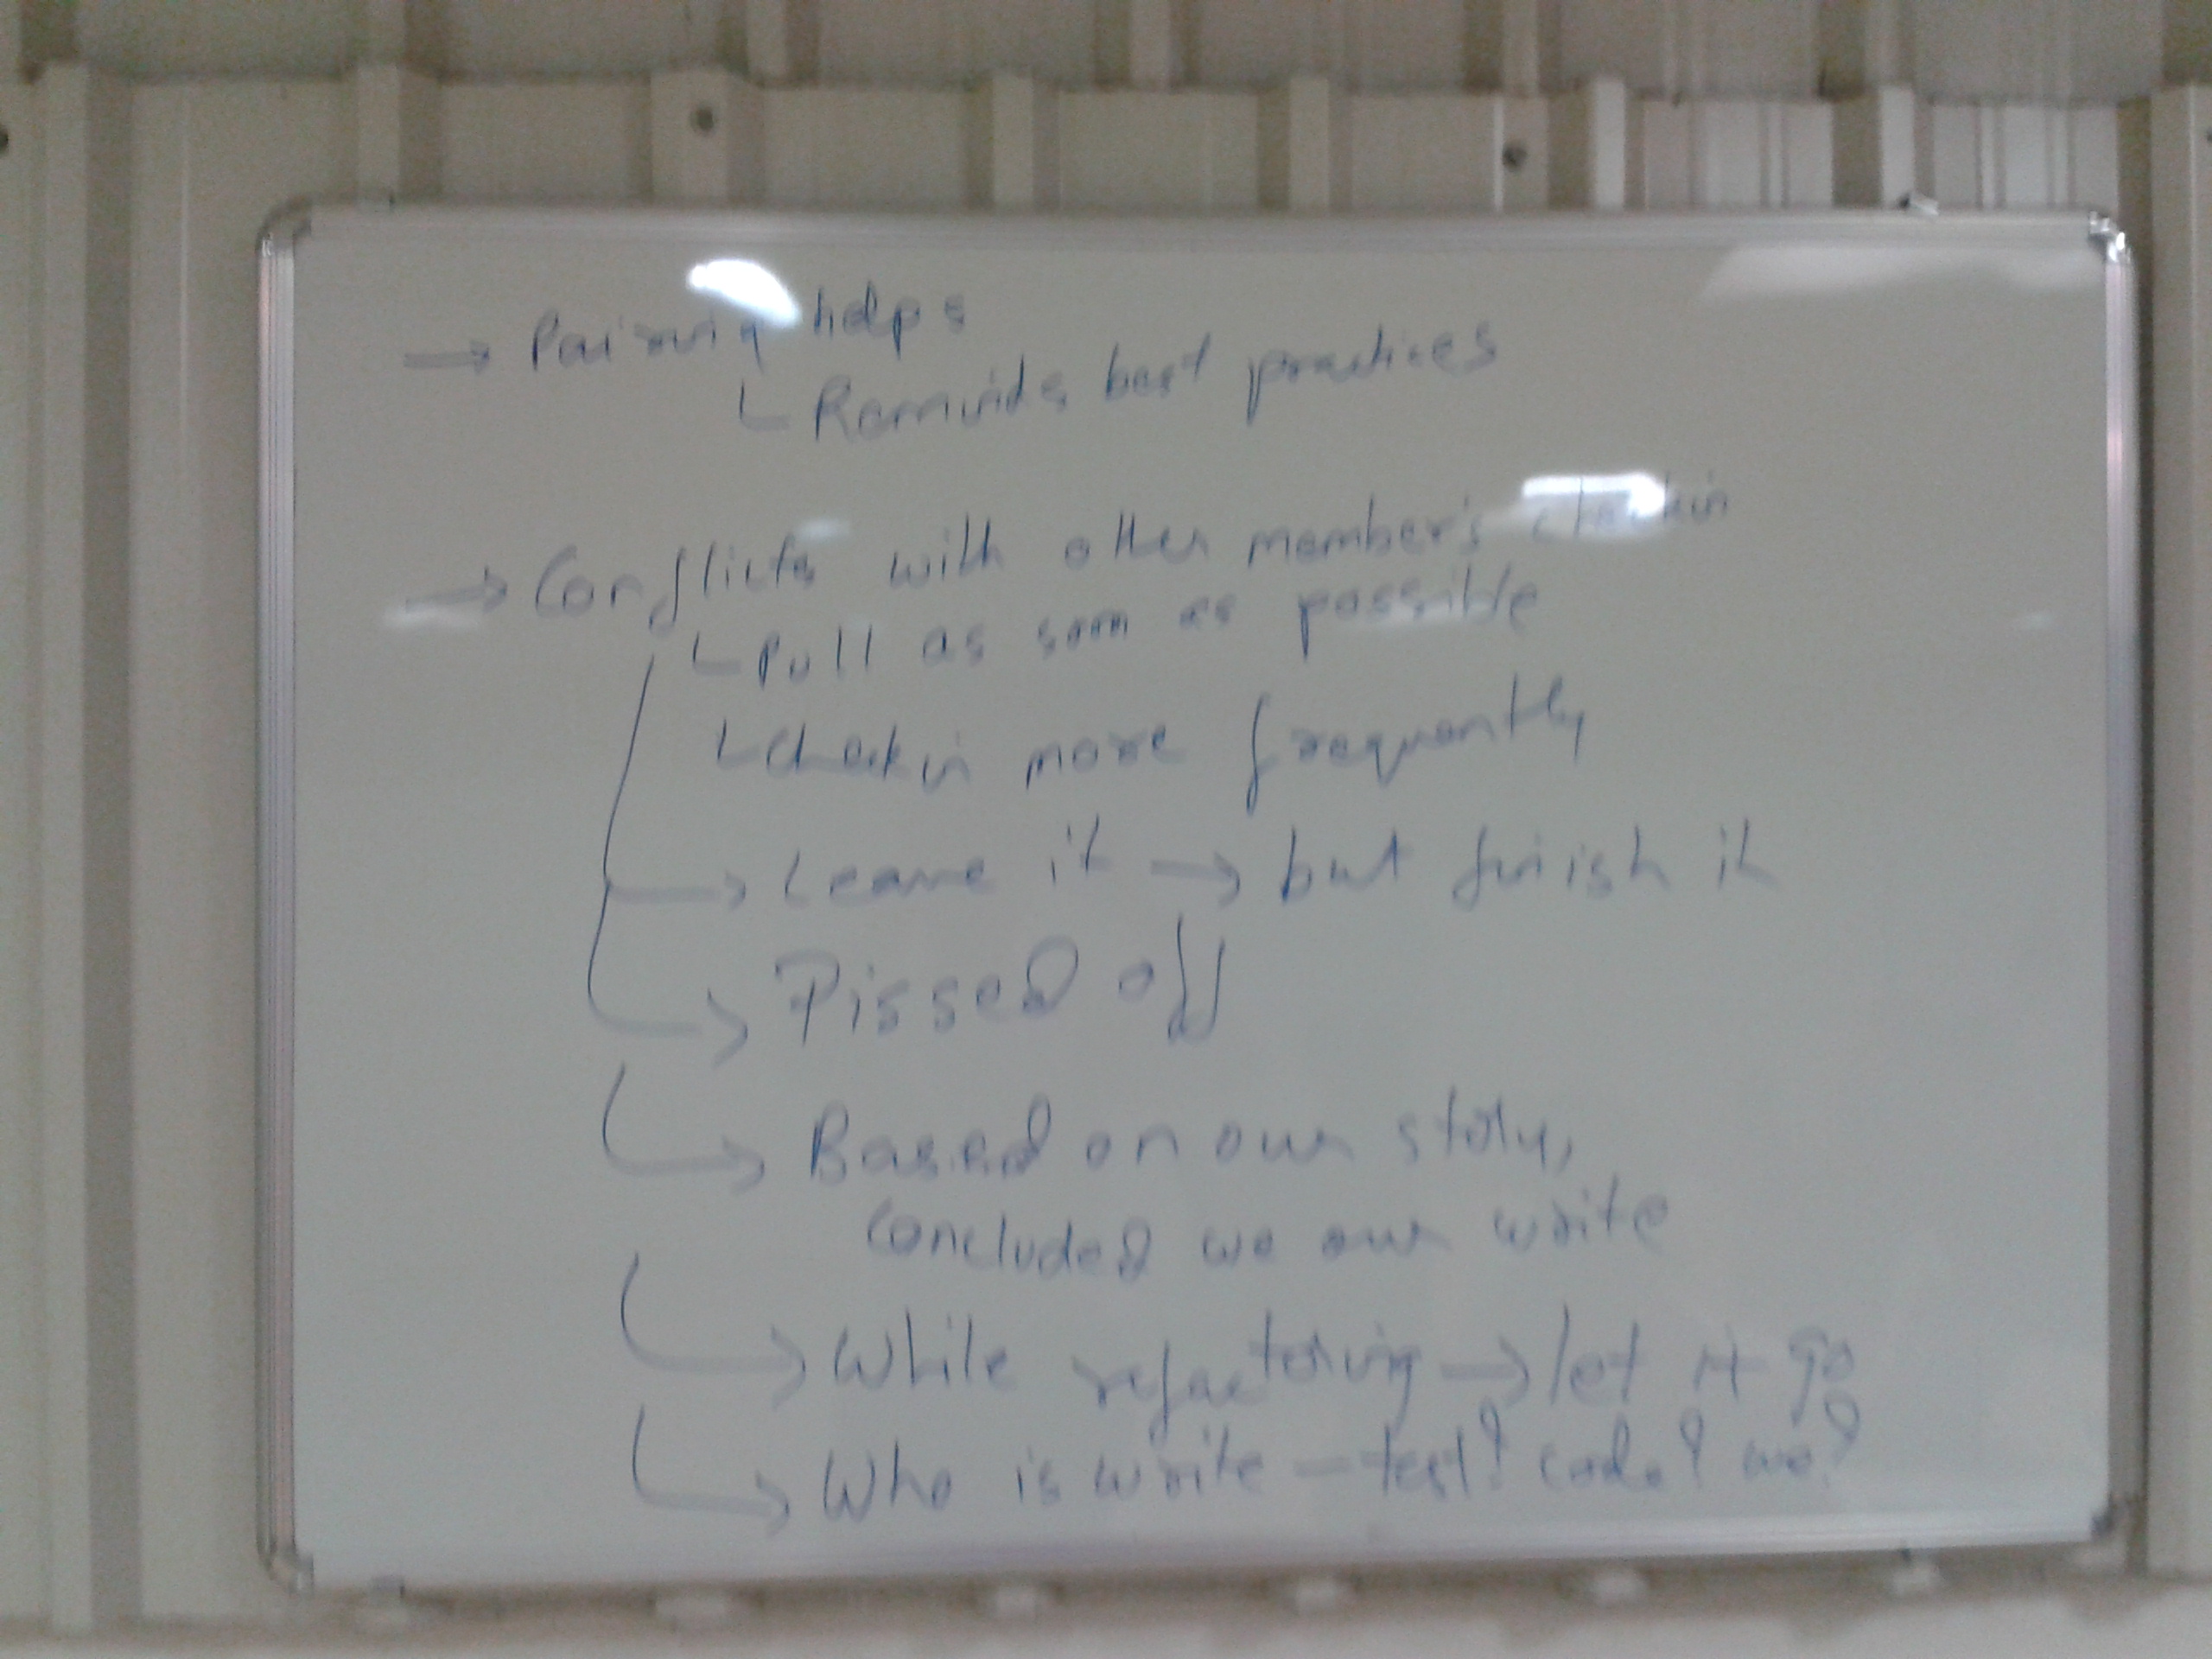 → Pairing helps
└ Reminds best practices
→ Conflicts with other member's checkin
└ Pull as soon as possible
└ checkin more frequently
→ Leave it → but finish it
→ Pissed off
→ Based on our story,
concluded we our write
→ While refactoring → let it go
→ Who is write – test? code? we?